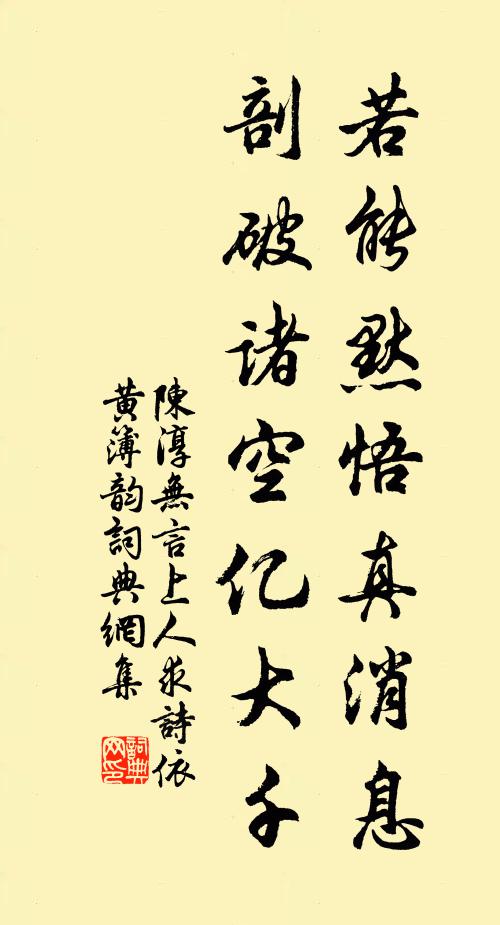 若能默悟真消息
剖破诸空亿大千
陳淳無言上人求詩依
黄簿韵詞典網集
詞典網印